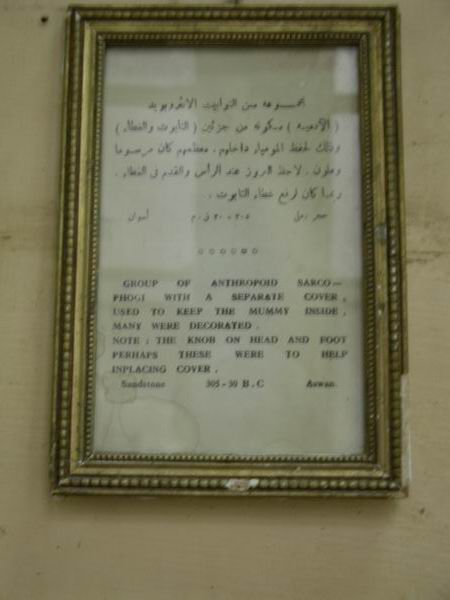 مجموعه من التوابيت الانثروبويد
( الآدميه ) مكونه من جزئين ( التابوت والغطاء )
وذلك لحفظ المومياء داخلهم . معظمهم كان مرسوما
وملون . لاحظ البروز عند الرأس والقدم فى الغطاء .
ربما كان لرفع غطاء التابوت .
حجر رملى ٣٠٥ - ٣٠ ق . م أسوان
GROUP OF ANTHROPOID SARCO—
PHOGI WITH A SEPARATE COVER ,
USED TO KEEP THE MUMMY INSIDE ,
MANY WERE DECORATED .
NOTE : THE KNOB ON HEAD AND FOOT
PERHAPS THESE WERE TO HELP
INPLACING COVER .
Sandstone 305 - 30 B . C Aswan.